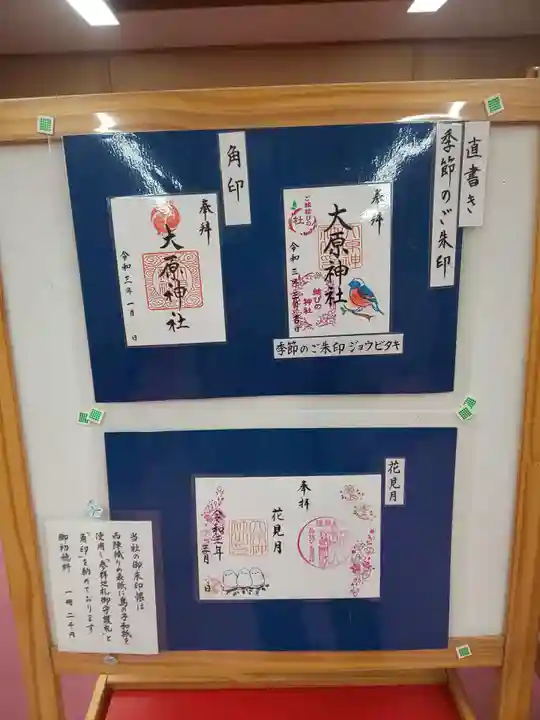 直書き
季節のご朱印
奉拝
大原神社
ご縁結びの
社
結びの
神社
季節のご朱印 ジョウビタキ
角印
奉拝
大原神社
令和三年一月 日
花見月
奉拝
花見月
令和三年
三月
日
当社の御朱印帳は
西陣織りの表紙に鳥の子和紙を
使用し「参拝巡礼御守護札」と
「角印」を納めております
御初穂料 一冊 二千円